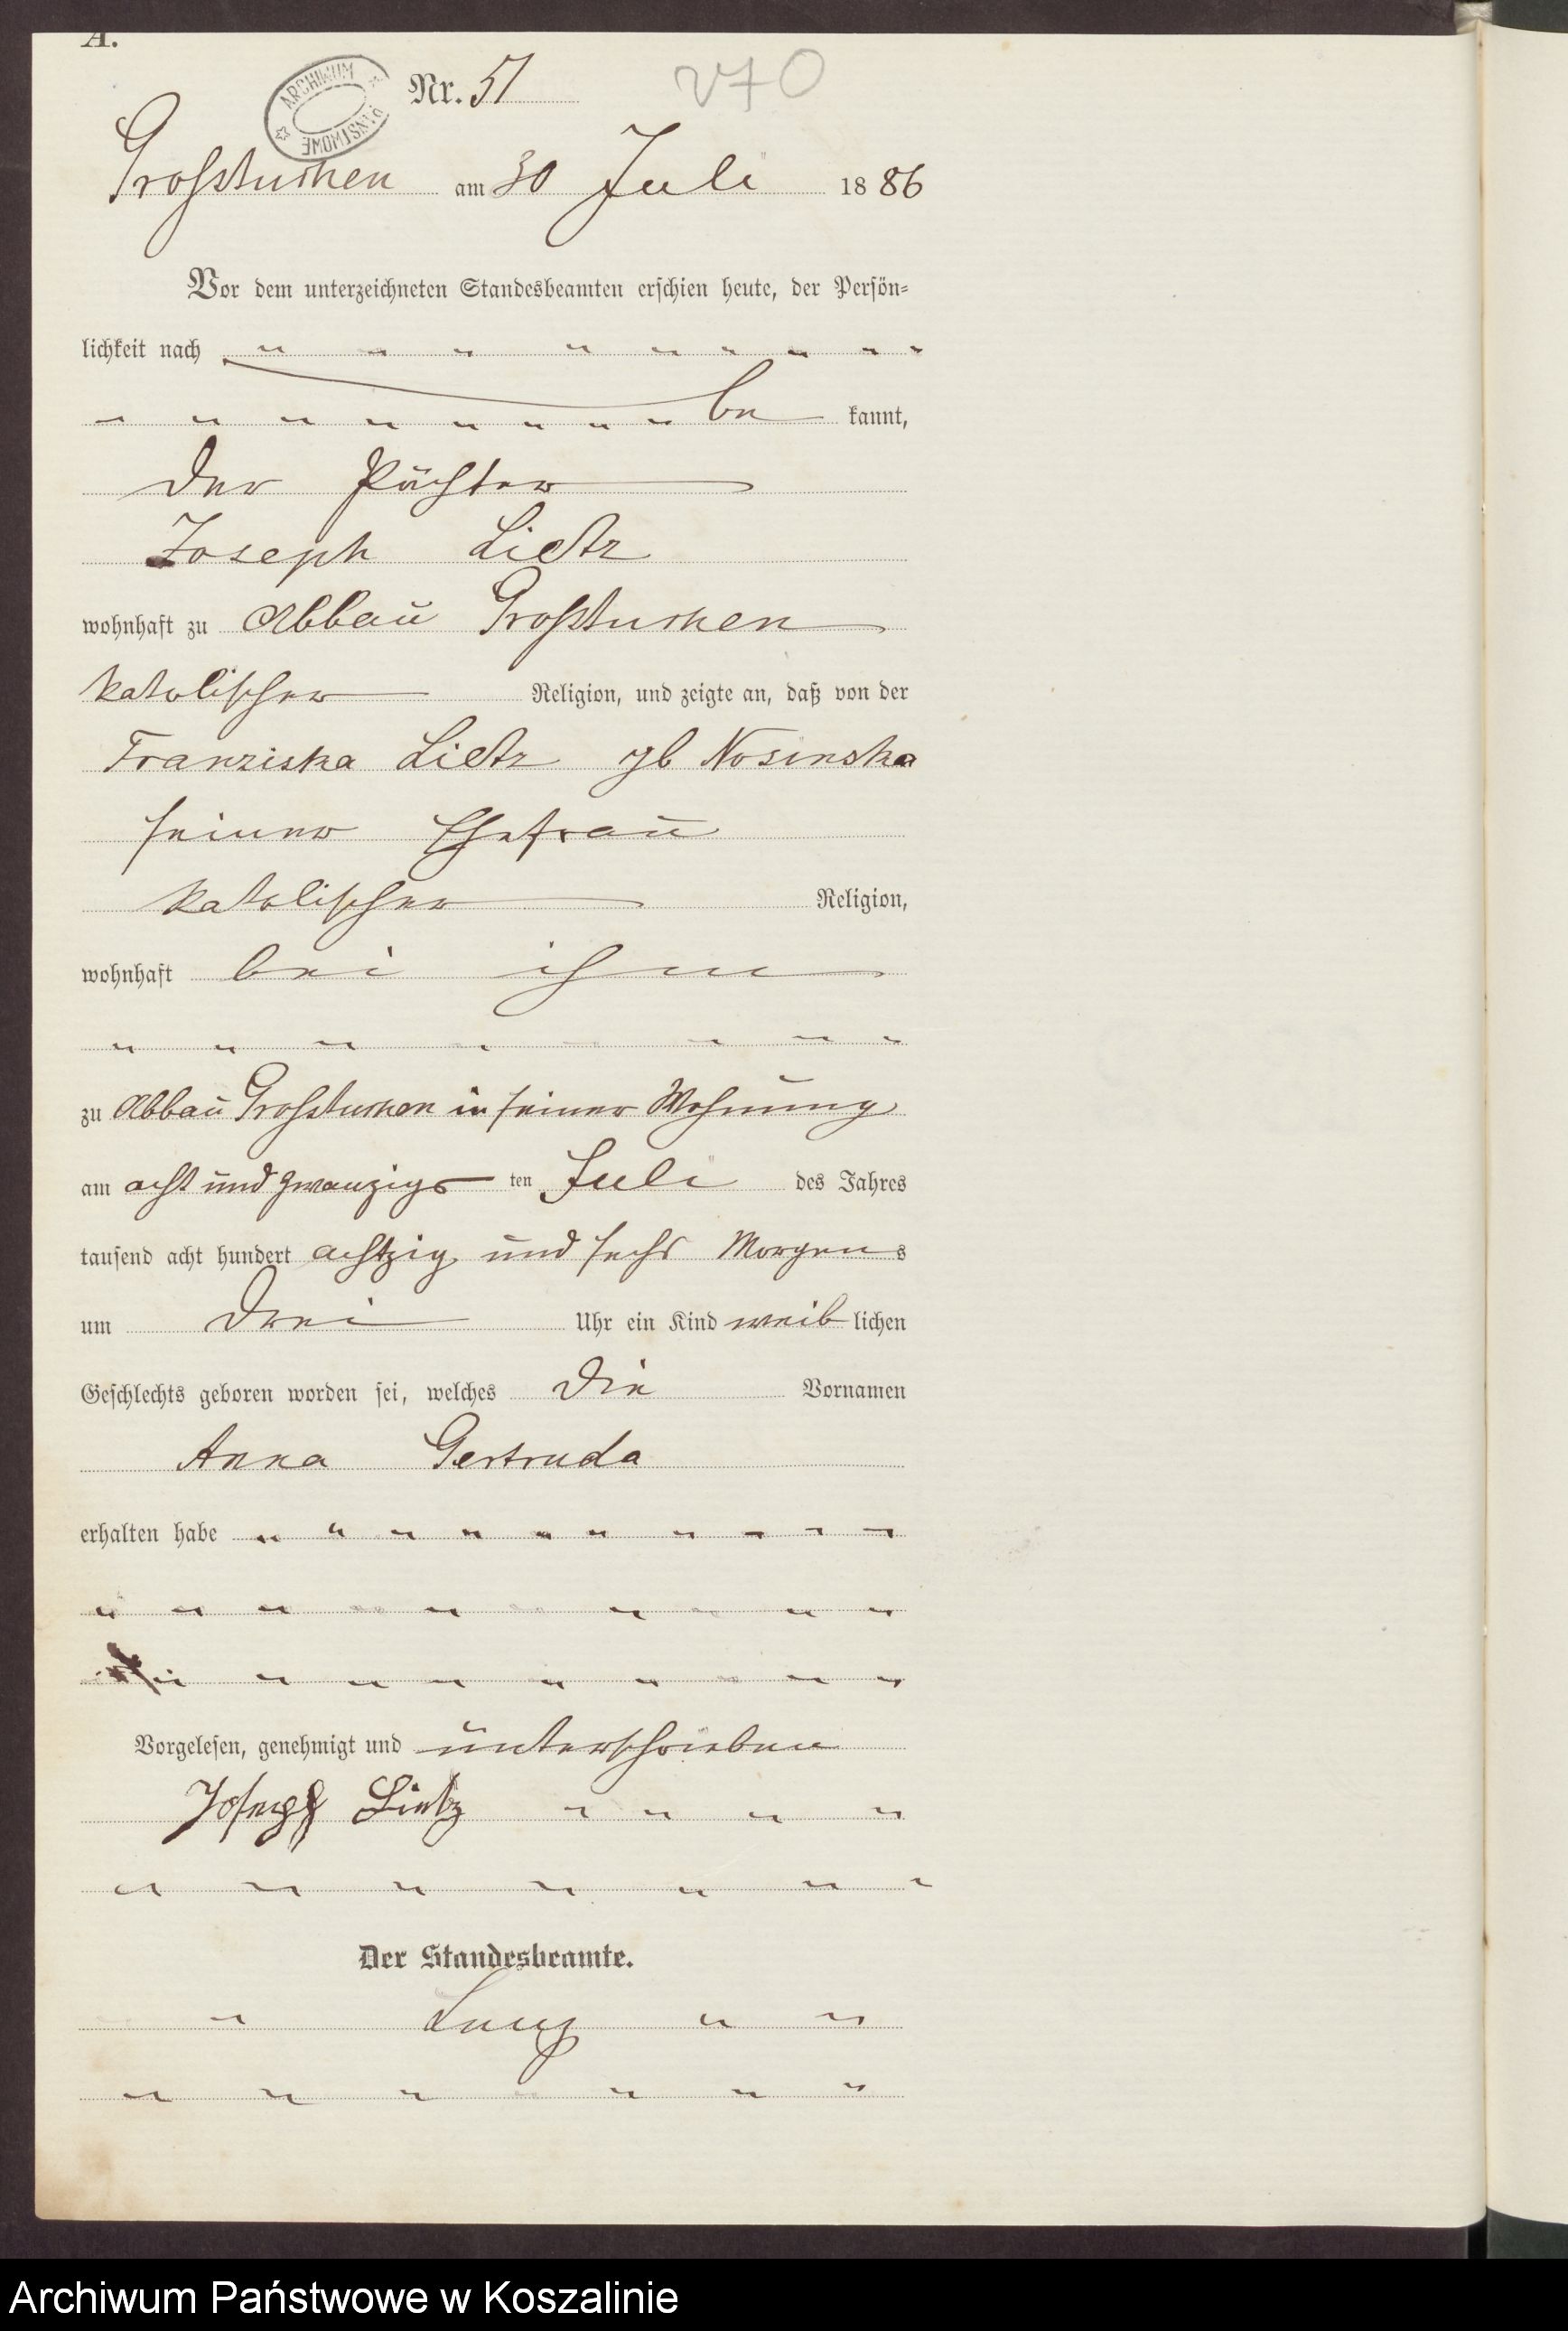 A.
ARCHIWUM PAŃSTWOWE
Nr. 51
270
Großtuchen am 30 Juli 1886
Vor dem unterzeichneten Standesbeamten erschien heute, der Persön-
lichkeit nach
be kannt,
der Pächter
Joseph Lietz
wohnhaft zu Abbau Großtuchen
katolischer Religion, und zeigte an, daß von der
Franziska Lietz gb Nosinska
seiner Ehefrau
katolischer Religion,
wohnhaft bei ihm
zu Abbau Großtuchen in seiner Wohnung
am acht und zwanzigs ten Juli des Jahres
tausend acht hundert achtzig und sechs Morgens
um drei Uhr ein Kind weib lichen
Geschlechts geboren worden sei, welches die Vornamen
Anna Gertruda
erhalten habe
Vorgelesen, genehmigt und unterschrieben
Joseph Lietz
Der Standesbeamte.
Archiwum Państwowe w Koszalinie